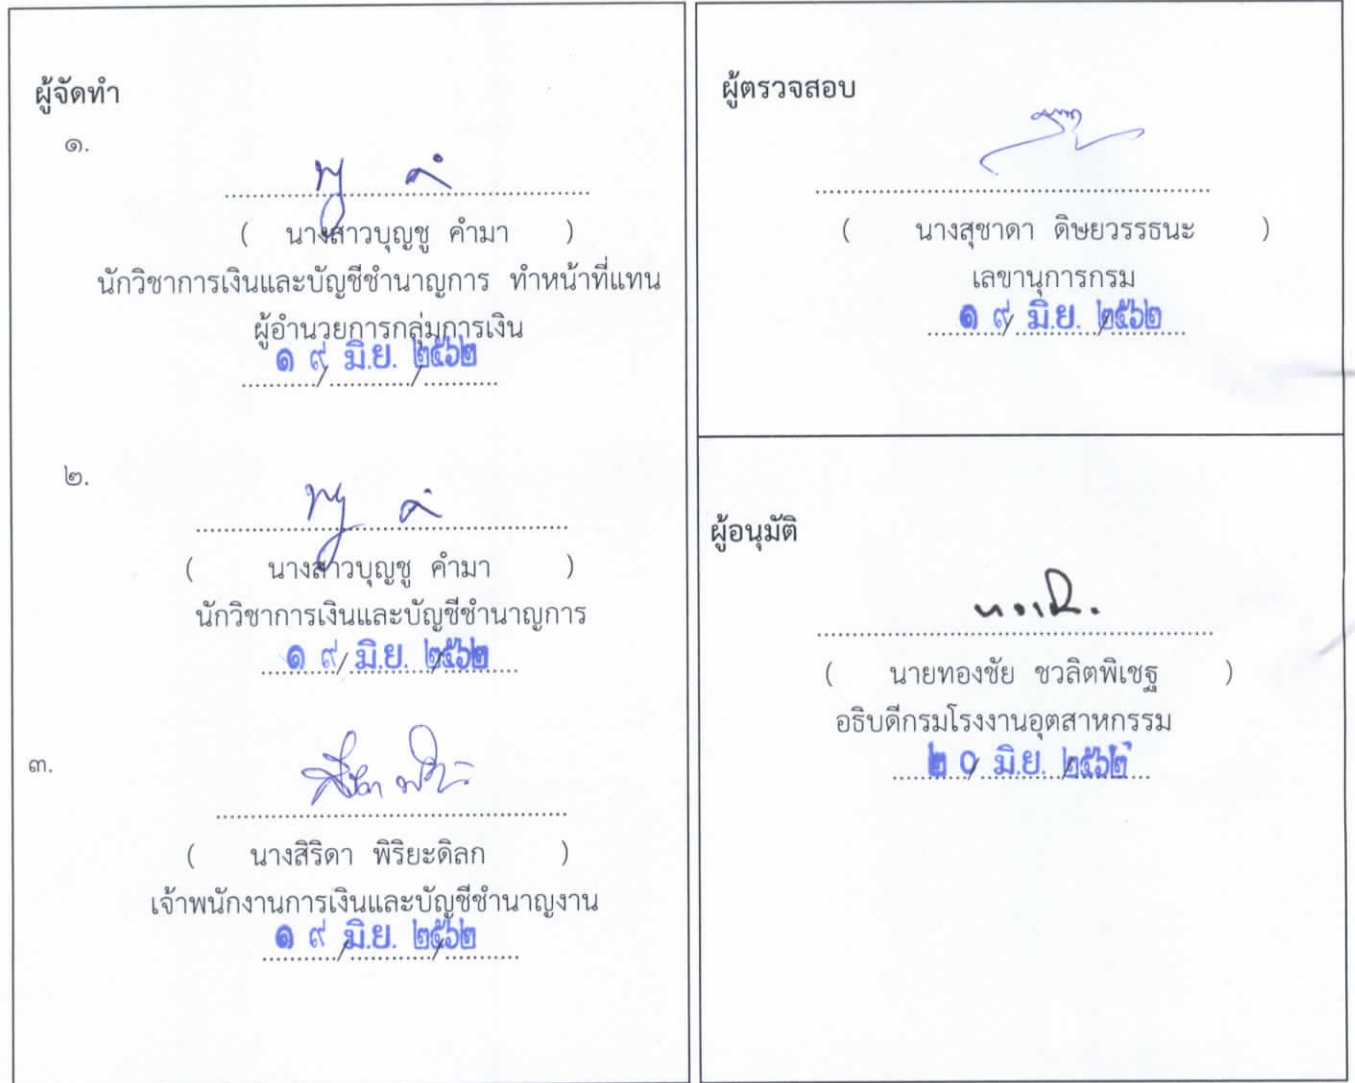 ผู้จัดทำ
๑.
( นางสาวบุญชู คำมา )
นักวิชาการเงินและบัญชีชำนาญการ ทำหน้าที่แทน
ผู้อำนวยการกลุ่มการเงิน
๑ ๙ / มิ.ย. / ๒๕๖๒
๒.
( นางสาวบุญชู คำมา )
นักวิชาการเงินและบัญชีชำนาญการ
๑ ๙ / มิ.ย. / ๒๕๖๒
๓.
( นางสิริดา พิริยะดิลก )
เจ้าพนักงานการเงินและบัญชีชำนาญงาน
๑ ๙ / มิ.ย. / ๒๕๖๒
ผู้ตรวจสอบ
( นางสุชาดา ดิษยวรรธนะ )
เลขานุการกรม
๑ ๙ / มิ.ย. / ๒๕๖๒
ผู้อนุมัติ
( นายทองชัย ชวลิตพิเชฐ )
อธิบดีกรมโรงงานอุตสาหกรรม
๒ ๐ / มิ.ย. / ๒๕๖๒